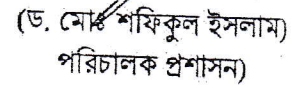 (ড. মোঃ শফিকুল ইসলাম)
পরিচালক প্রশাসন)